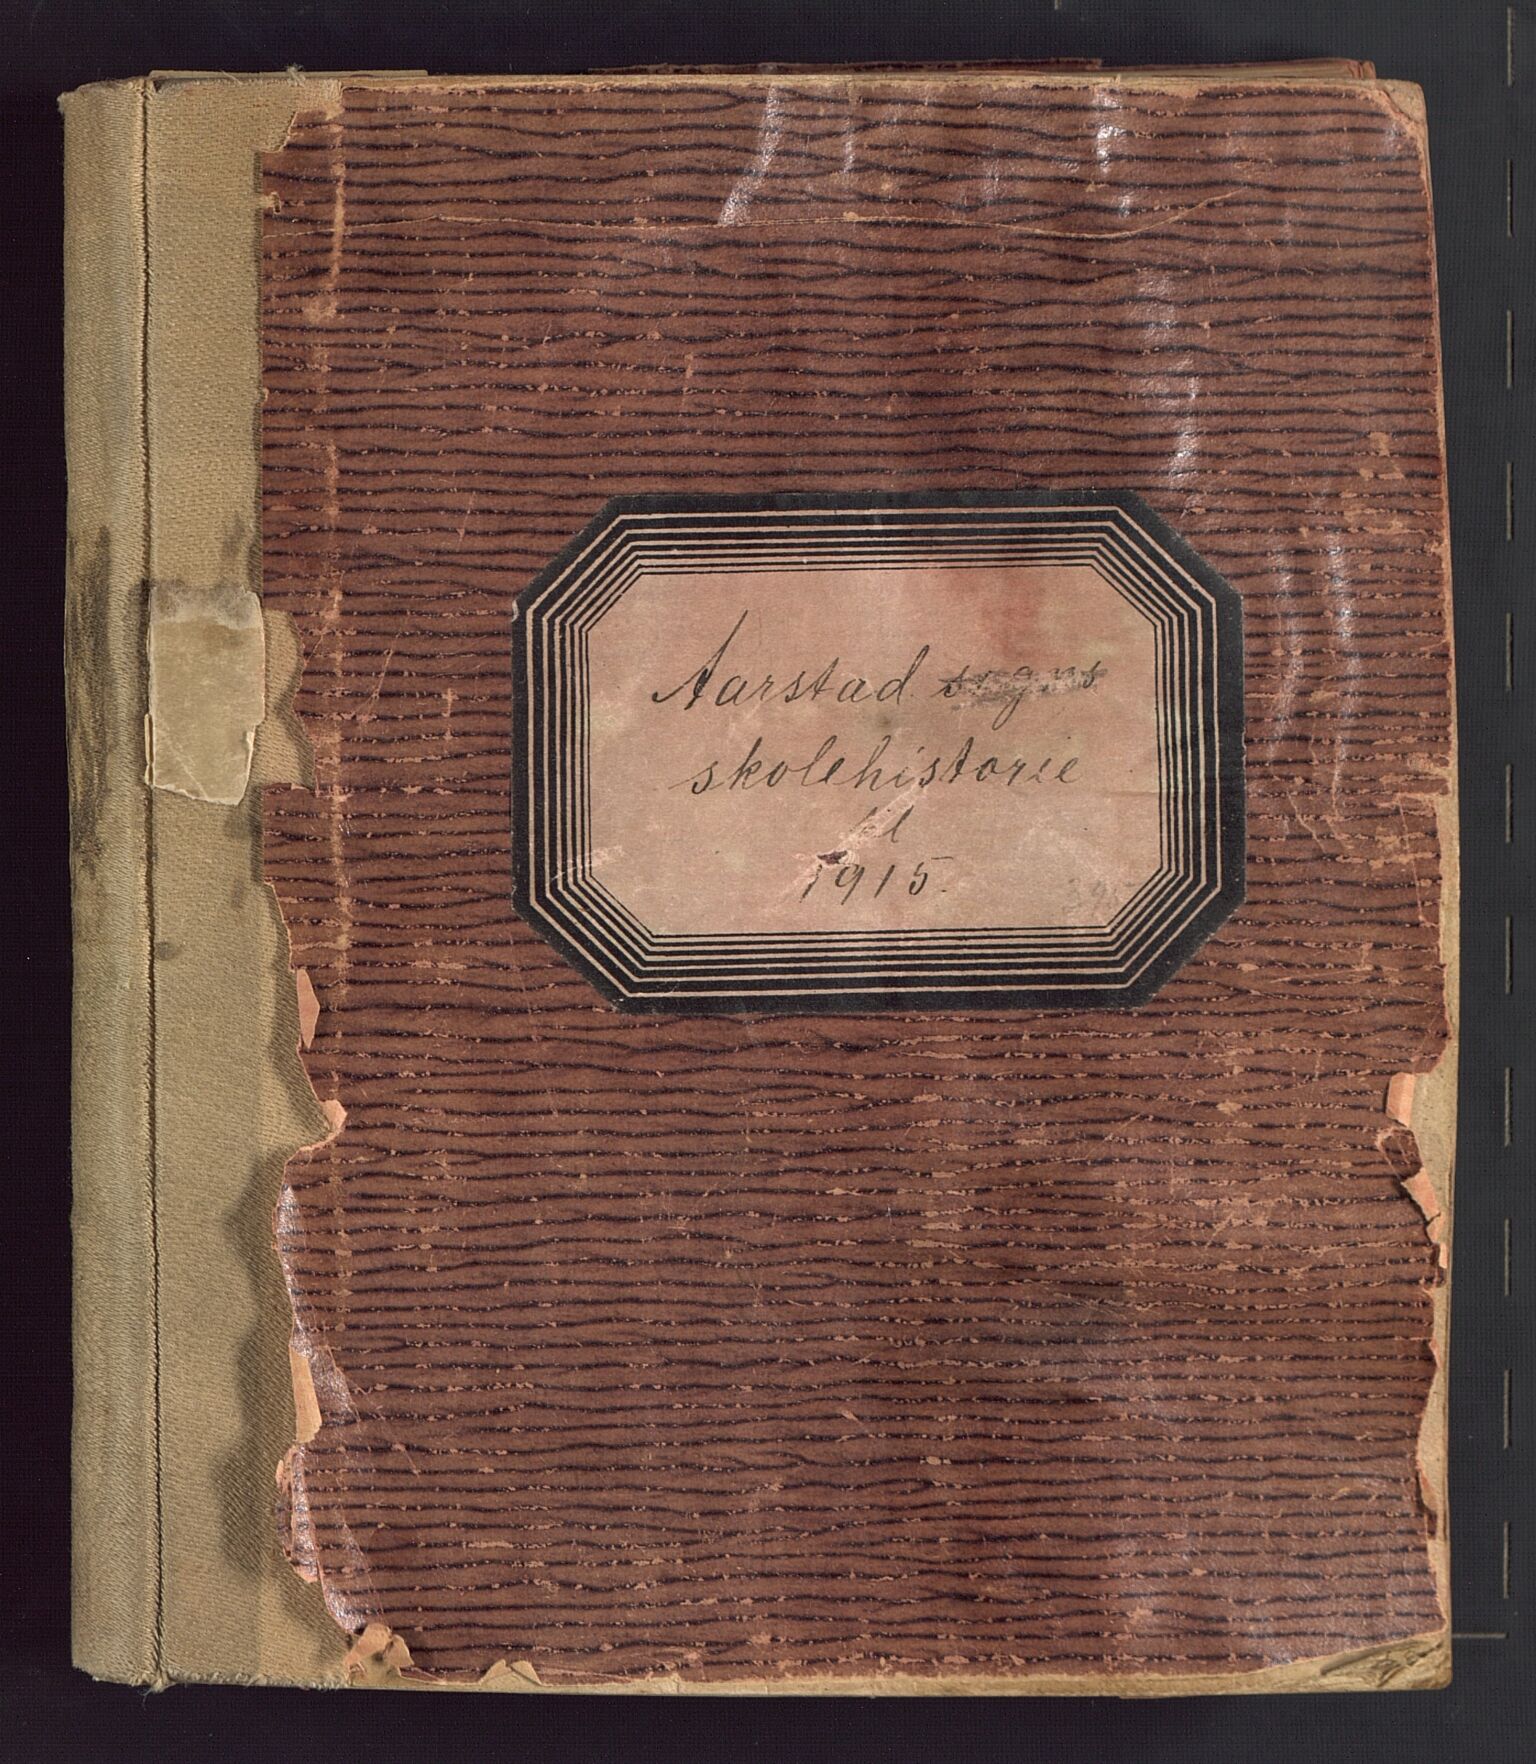 Aarstad sogns
skolehistorie
til
1915.